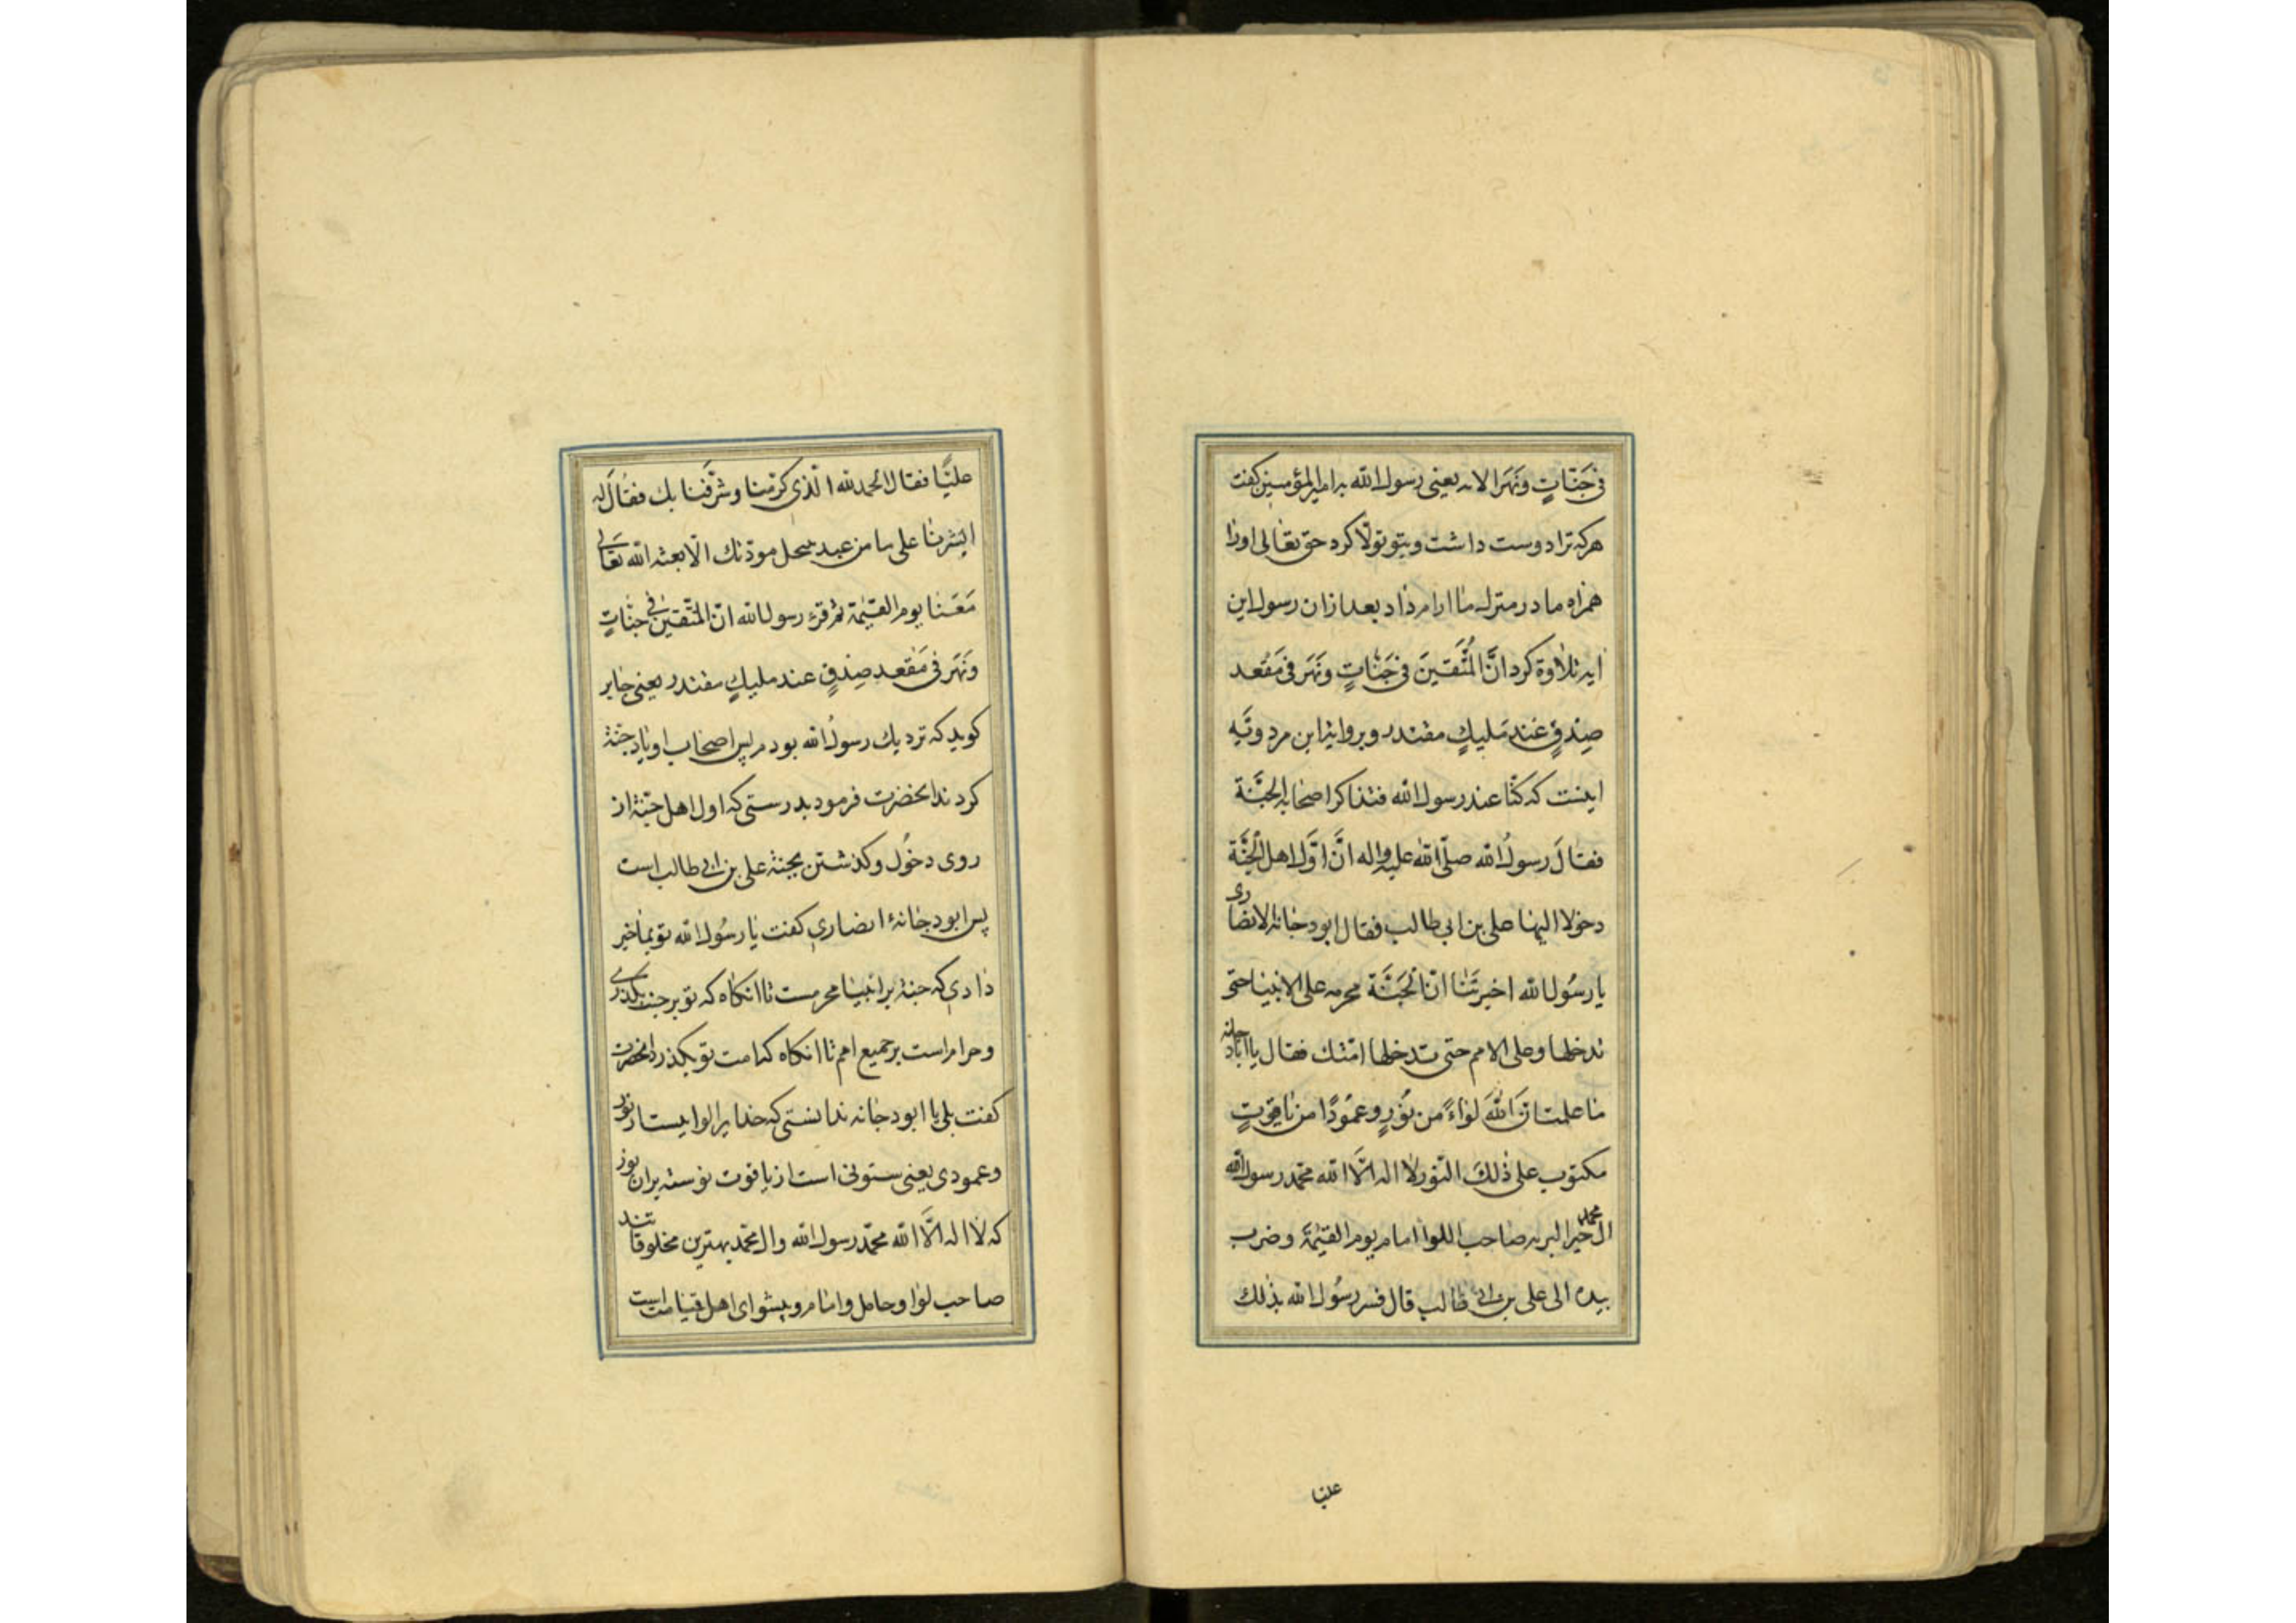 فی جَنّاتٍ ونَهَر الایه یعنی رسول الله بامیرالمؤمنین کفت
هرکه ترا دوست داشت وبتو تولّا کرد حق تعالی اورا
همراه ما در منزله ما ارام داد بعد ازان رسول این
ایه تلاوة کرد انَّ المُتَّقینَ فی جَنّاتٍ ونَهَر فی مَقعد
صِدقٍ عند مَلیكٍ مقتدر وبروایة ابن مردویَه
اینست که کنّا عند رسول الله فتذاکر اصحابه الجَنَّة
فقالَ رسولُ الله صلّی الله علیه واله انَّ اوَّل اهل الجَنَّة
دخولا الیها علی بن ابی طالب فقال ابودجانه الانصاری
یا رسُول الله اخبرتَنا انّ الجَنَّة محرمه علی الانبیا حتی
تدخلها وعلی الامم حتی تدخلها امّتك فقال یا اباد جانه
ما علمت انَّ اللهَ لواءً من نُورٍ وعمُودًا من یاقوتٍ
مکتوب علی ذلكَ النّور لا اله الَّا الله محمّد رسول الله
ال محمد خیر البریه صاحب اللوا امام یوم القیٰمَة وضرب
بیده الی علی بن ابی طالب قال فسر رسُول الله بذلك
علیا
علیًّا فقال الحمدلله الّذی کرّمنا وشرَّفنا بك فقالَ له
ابشر یا علی ما من عبد ینحل مودّتك الّا بعثه الله تعَالی
مَعَنا یوم القیٰمة ثم قرء رسول الله انّ المتّقینَ فی جنّاتٍ
ونَهَر فی مَقعد صِدقٍ عند ملیكٍ مقتدر یعنی جابر
کوید که نزدیك رسولُ الله بودم پس اصحاب او یاد جنة
کردند انحضرت فرمود بدرستی که اول اهل جنّة از
روی دخُول وکذشتن بجنة علی بن ابی طالب است
پس ابودجانهٔ انصاری کفت یا رسُول الله تو بما خبر
دادی که جنة بر انبیا محرمست تا انکاه که تو بر جنة بکذری
وحرام است بر جمیع امم تا انکاه که امت تو بکذرد انحضرت
کفت بلی یا ابودجانه ندانستی که خدایرا لوایست از نور
وعمودی یعنی ستونی است از یاقوت نوشته بران نور
که لا اله الَّا الله محمّد رسول الله وال محمّد بهترین مخلوقاتند
صاحب لوا وحامل وامام وپیشوای اهل قیامت است